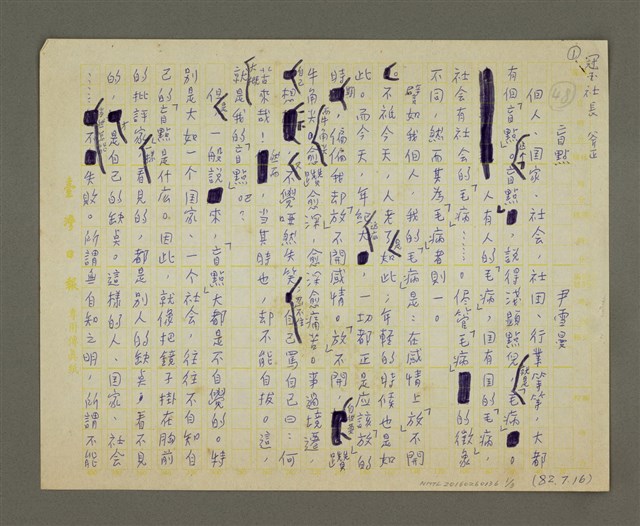 冠玉社長 斧正
①
48
盲點
尹雪曼
個人、国家、社会,社团、行業等等,大都
有個「盲點」。「盲點」,說得淺顯點兒就是「毛病」。
人有人的「毛病」,国有国的「毛病」,
社会有社会的「毛病」……。儘管「毛病」的徵象
不同,然而其為「毛病」者則一。
譬如我個人,我的「毛病」是:在感情上「放不開」
。不祗今天,人老了是如此;年輕的時候也是如
此。而今天,年紀大,一切都正是應該「放」的
時候,偏偏我却放不開感情。「放不開」鑽
牛角尖。愈鑽愈深,愈深愈痛苦。事過境遷,
想想,不覺啞然失笑,自己罵自己曰:何
苦來哉!然而,當其時也,却不能自拔。這,
就是我的「盲點」吧?
但,一般說來,「盲點」大都是不自覺的。特
別是大如一個国家、一個社会,往往不自知自
己的「盲點」是什么。因此,就像把鏡子掛在胸前
的批評家,看見的,都是別人的缺矣;看不見
的,是自己的缺矣。這樣的人、国家、社会
……不失敗。所謂無自知之明,所謂不能
臺灣日報
NMTL20160050496 1/3
(82.7.16)